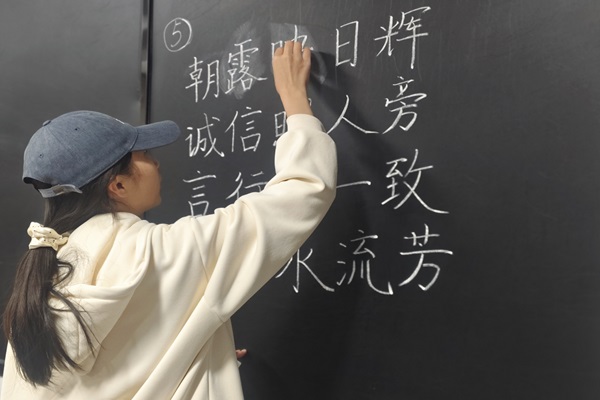 ⑤
朝露日辉
诚信照人旁
言行一致
水流芳